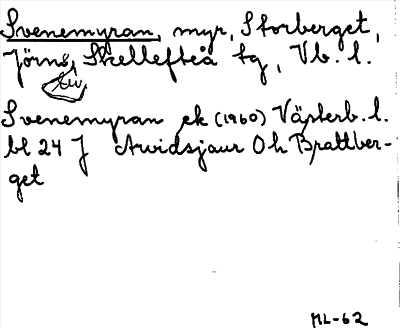 Svenemyran, myr, Storberget,
Jörns, Skellefteå tg, Vb. l.
Svenemyran ek (1960) Västerb. l.
bl 24 J Arvidsjaur Oh Brattber-
get
ML-62